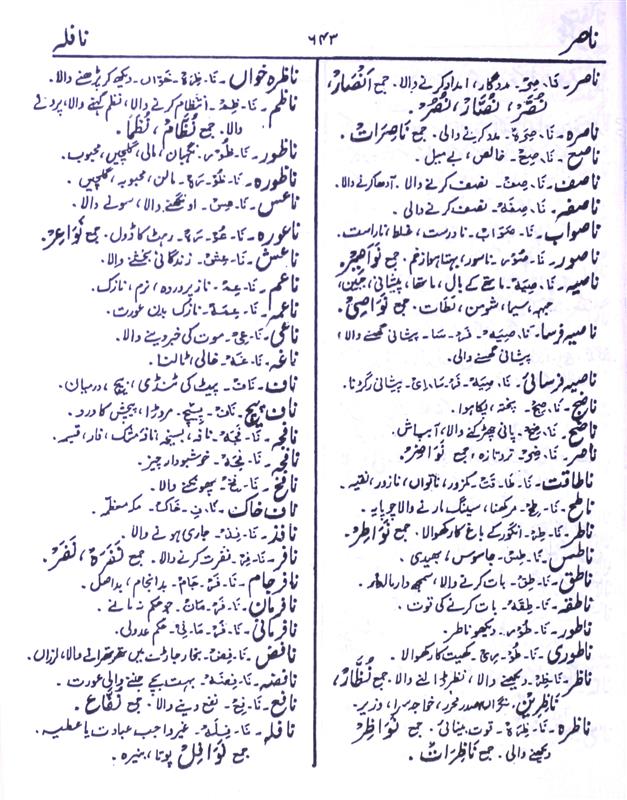 ناصر ۶۴۳ نافلہ
ناصر۔ نَا۔ صِرْ۔ مددگار، امداد کرنے والا۔ جمع اَنْصَارْ،
نُصَّرْ، نُصَّارْ، نُصُرْ۔
ناصرہ۔ نَا۔ صِرَہْ۔ مدد کرنے والی۔ جمع نَاصِرَاتْ۔
ناصح۔ نَا۔ صِحْ۔ خالص، بے میل۔
ناصف۔ نَا۔ صِفْ۔ نصف کرنے والا۔ آدھا کرنے والا۔
ناصفہ۔ نَا۔ صِفَہْ۔ نصف کرنے والی۔
ناصواب۔ نَا۔ صَوَابْ۔ نادرست، غلط، ناراست۔
ناصور۔ نَا۔ صُوْرْ۔ ناسور، بہتا ہوا زخم۔ جمع
ناصیہ۔ نَا۔ صِیَہْ۔ ماتھے کے بال، ماتھا، پیشانی، جبین،
جبہہ، سیما، جمع نَوَاصِیْ۔
ناصیہ فرسا۔ نَا۔ صِیَہْ۔ فَرْ۔ سَا۔ پیشانی گھسنے والا،
پیشانی گھسنے والی۔
ناصیہ فرسائی۔ نَا۔ صِیَہْ۔ فَرْ۔ سَا۔ ئِیْ۔ پیشانی رگڑنا۔
ناضج۔ نَا۔ ضِجْ۔ پختہ، پکا ہوا۔
ناضح۔ نَا۔ ضِحْ۔ پانی چھڑکنے والا، آبپاش۔
ناضر۔ نَا۔ ضِرْ۔ تر و تازہ، جمع نَوَاضِرْ۔
ناطاقت۔ نَا۔ طَا۔ قَتْ۔ کمزور، ناتواں، نازور، نقیہ۔
ناطح۔ نَا۔ طِحْ۔ مرکھنا، سینگ مارنے والا چوپایہ۔
ناطر۔ نَا۔ طِرْ۔ انگور کے باغ کا رکھوالا۔ جمع نَوَاطِرْ۔
ناطس۔ نَا۔ طِسْ۔ جاسوس، بھیدی۔
ناطق۔ نَا۔ طِقْ۔ بات کرنے والا، سمجھ دار
ناطقہ۔ نَا۔ طِقَہْ۔ بات کرنے کی قوت۔
ناطور۔ نَا۔ طُوْرْ۔ دیکھو ناطر۔
ناطوری۔ نَا۔ طُوْ۔ رِیْ۔ کھیت کا رکھوالا۔
ناظر۔ نَا۔ ظِرْ۔ دیکھنے والا، نظر ڈالنے والا۔ جمع نُظَّارْ،
نَاظِرِیْن۔ نگراں، صدر محرر، خواجہ سرا، وزیر۔
ناظرہ۔ نَا۔ ظِرَہْ۔ قوت بینائی۔ جمع نَوَاظِرْ
دیکھنے والی۔ جمع نَاظِرَاتْ۔
ناظرہ خواں۔ نَا۔ ظِرَہْ۔ خَوَاں۔ دیکھ کر پڑھنے والا۔
ناظم۔ نَا۔ ظِمْ۔ انتظام کرنے والا، نظم کہنے والا، پرونے
والا۔ جمع نُظَّامْ، نُظَمَا۔
ناظور۔ نَا۔ ظُوْرْ۔ نگہبان، مالی، گلچیں، محبوب۔
ناظورہ۔ نَا۔ ظُوْ۔ رَہْ۔ مالن، محبوبہ، گلچیں۔
ناعس۔ نَا۔ عِسْ۔ اونگھنے والا، سونے والا۔
ناعورہ۔ نَا۔ عُوْ۔ رَہْ۔ رہٹ کا ڈول۔ جمع نَوَاعِرْ۔
ناعش۔ نَا۔ عِشْ۔ زندگانی بخشنے والا۔
ناعم۔ نَا۔ عِمْ۔ ناز پروردہ، نرم، نازک۔
ناعمہ۔ نَا۔ عِمَہْ۔ نازک بدن عورت۔
ناعی۔ نَا۔ عِیْ۔ موت کی خبر دینے والا۔
ناغہ۔ نَا۔ غَہْ۔ خالی، ٹالنا۔
ناف۔ نَافْ۔ پیٹ کی ٹنڈی، بیچ، درمیان۔
ناف پیچ۔ نَافْ۔ پِیْچ۔ مروڑا، پیچش کا درد۔
نافجہ۔ نَا۔ فَجَہْ۔ نافہ، نافہ مشک،
نافجہ۔ نَا۔ فِجَہْ۔ خوشبودار چیز۔
نافخ۔ نَا۔ فِخْ۔ پھونکنے والا۔
ناف خاک۔ نَا۔ فِ۔ خَاکْ۔ مکہ معظمہ۔
نافذ۔ نَا۔ فِذْ۔ جاری ہونے والا۔
نافر۔ نَا۔ فِرْ۔ نفرت کرنے والا۔ جمع نَفَرَہْ، نَفَرْ۔
نافرجام۔ نَا۔ فَرْ۔ جَامْ۔ بدانجام، بداصل۔
نافرمان۔ نَا۔ فَرْ۔ مَانْ۔ جو حکم نہ مانے۔
نافرمانی۔ نَا۔ فَرْ۔ مَا۔ نِیْ۔ حکم عدولی۔
نافض۔ نَا۔ فِضْ۔ بخار جاڑے میں تھرتھرانے والا، لرزاں۔
نافضہ۔ نَا۔ فِضَہْ۔ بہت بچے جننے والی عورت۔
نافع۔ نَا۔ فِعْ۔ نفع دینے والا۔ جمع نُفَّاعْ۔
نافلہ۔ نَا۔ فِلَہْ۔ غیر واجب عبادت یا عطیہ۔
جمع نَوَافِلْ پوتا، نبیرہ۔